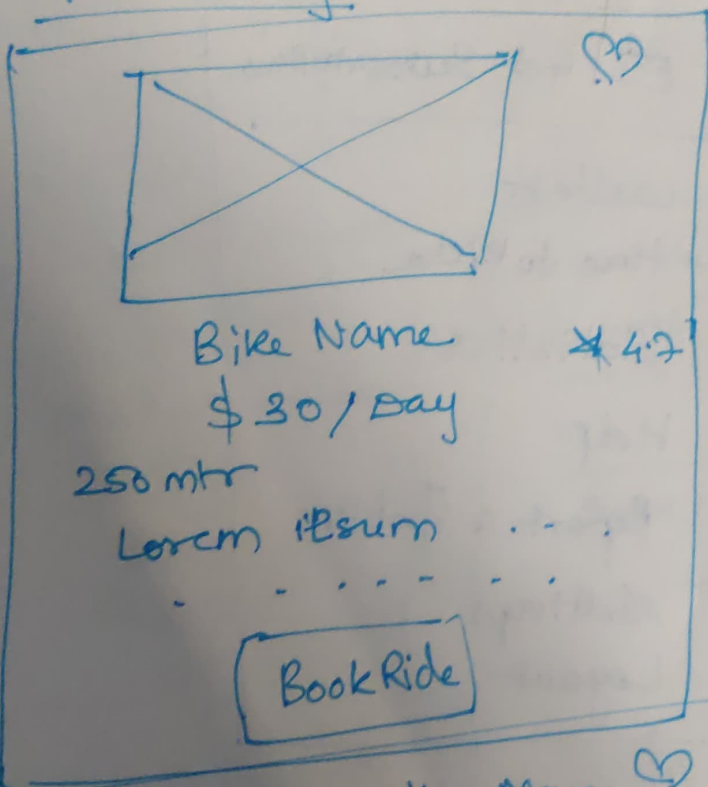 Bike Name
★ 4.7
$30/Day
250 mtr
Lorem ipsum ...
. . . . . . .
Book Ride